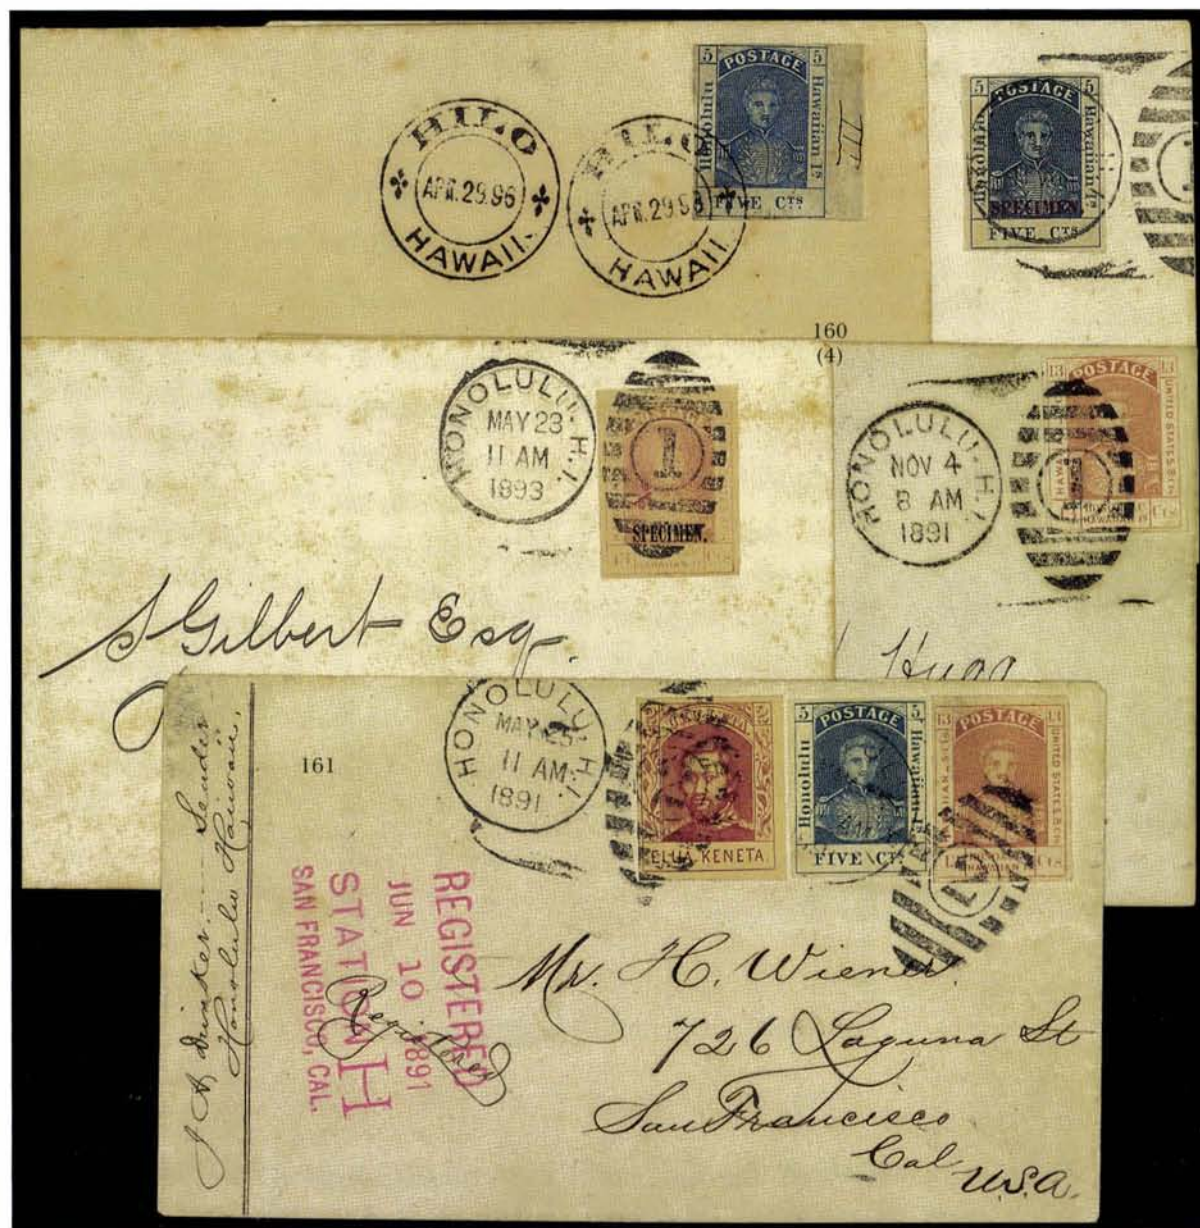 5 POSTAGE 5
Honolulu
Hawaiian Is
FIVE CTS
II
HILO
APR. 29.96
HAWAII.
HILO
APR. 29.96
HAWAII
5 POSTAGE 5
Honolulu
Hawaiian Is
SPECIMEN.
FIVE CTS
160
(4)
HONOLULU. H.I.
MAY 23
11 AM
1893
1
SPECIMEN.
Cts
HONOLULU. H.I.
NOV 4
8 AM
1891
1
13 POSTAGE 13
UNITED STATES
Cts
S Gilbert Esq.
Hugg
161
HONOLULU. H.I.
MAY 25
11 AM
1891
ELUA KENETA
5 POSTAGE 5
Honolulu
Hawaiian Is
FIVE CTS
13 POSTAGE 13
UNITED STATES
Cts
2
J A Drinker. Sender
Honolulu Hawaii.
REGISTERED
JUN 10 1891
STATION H
SAN FRANCISCO, CAL.
Registered
Mr. H. Wiener
726 Laguna St
San Francisco
Cal
U.S.A.